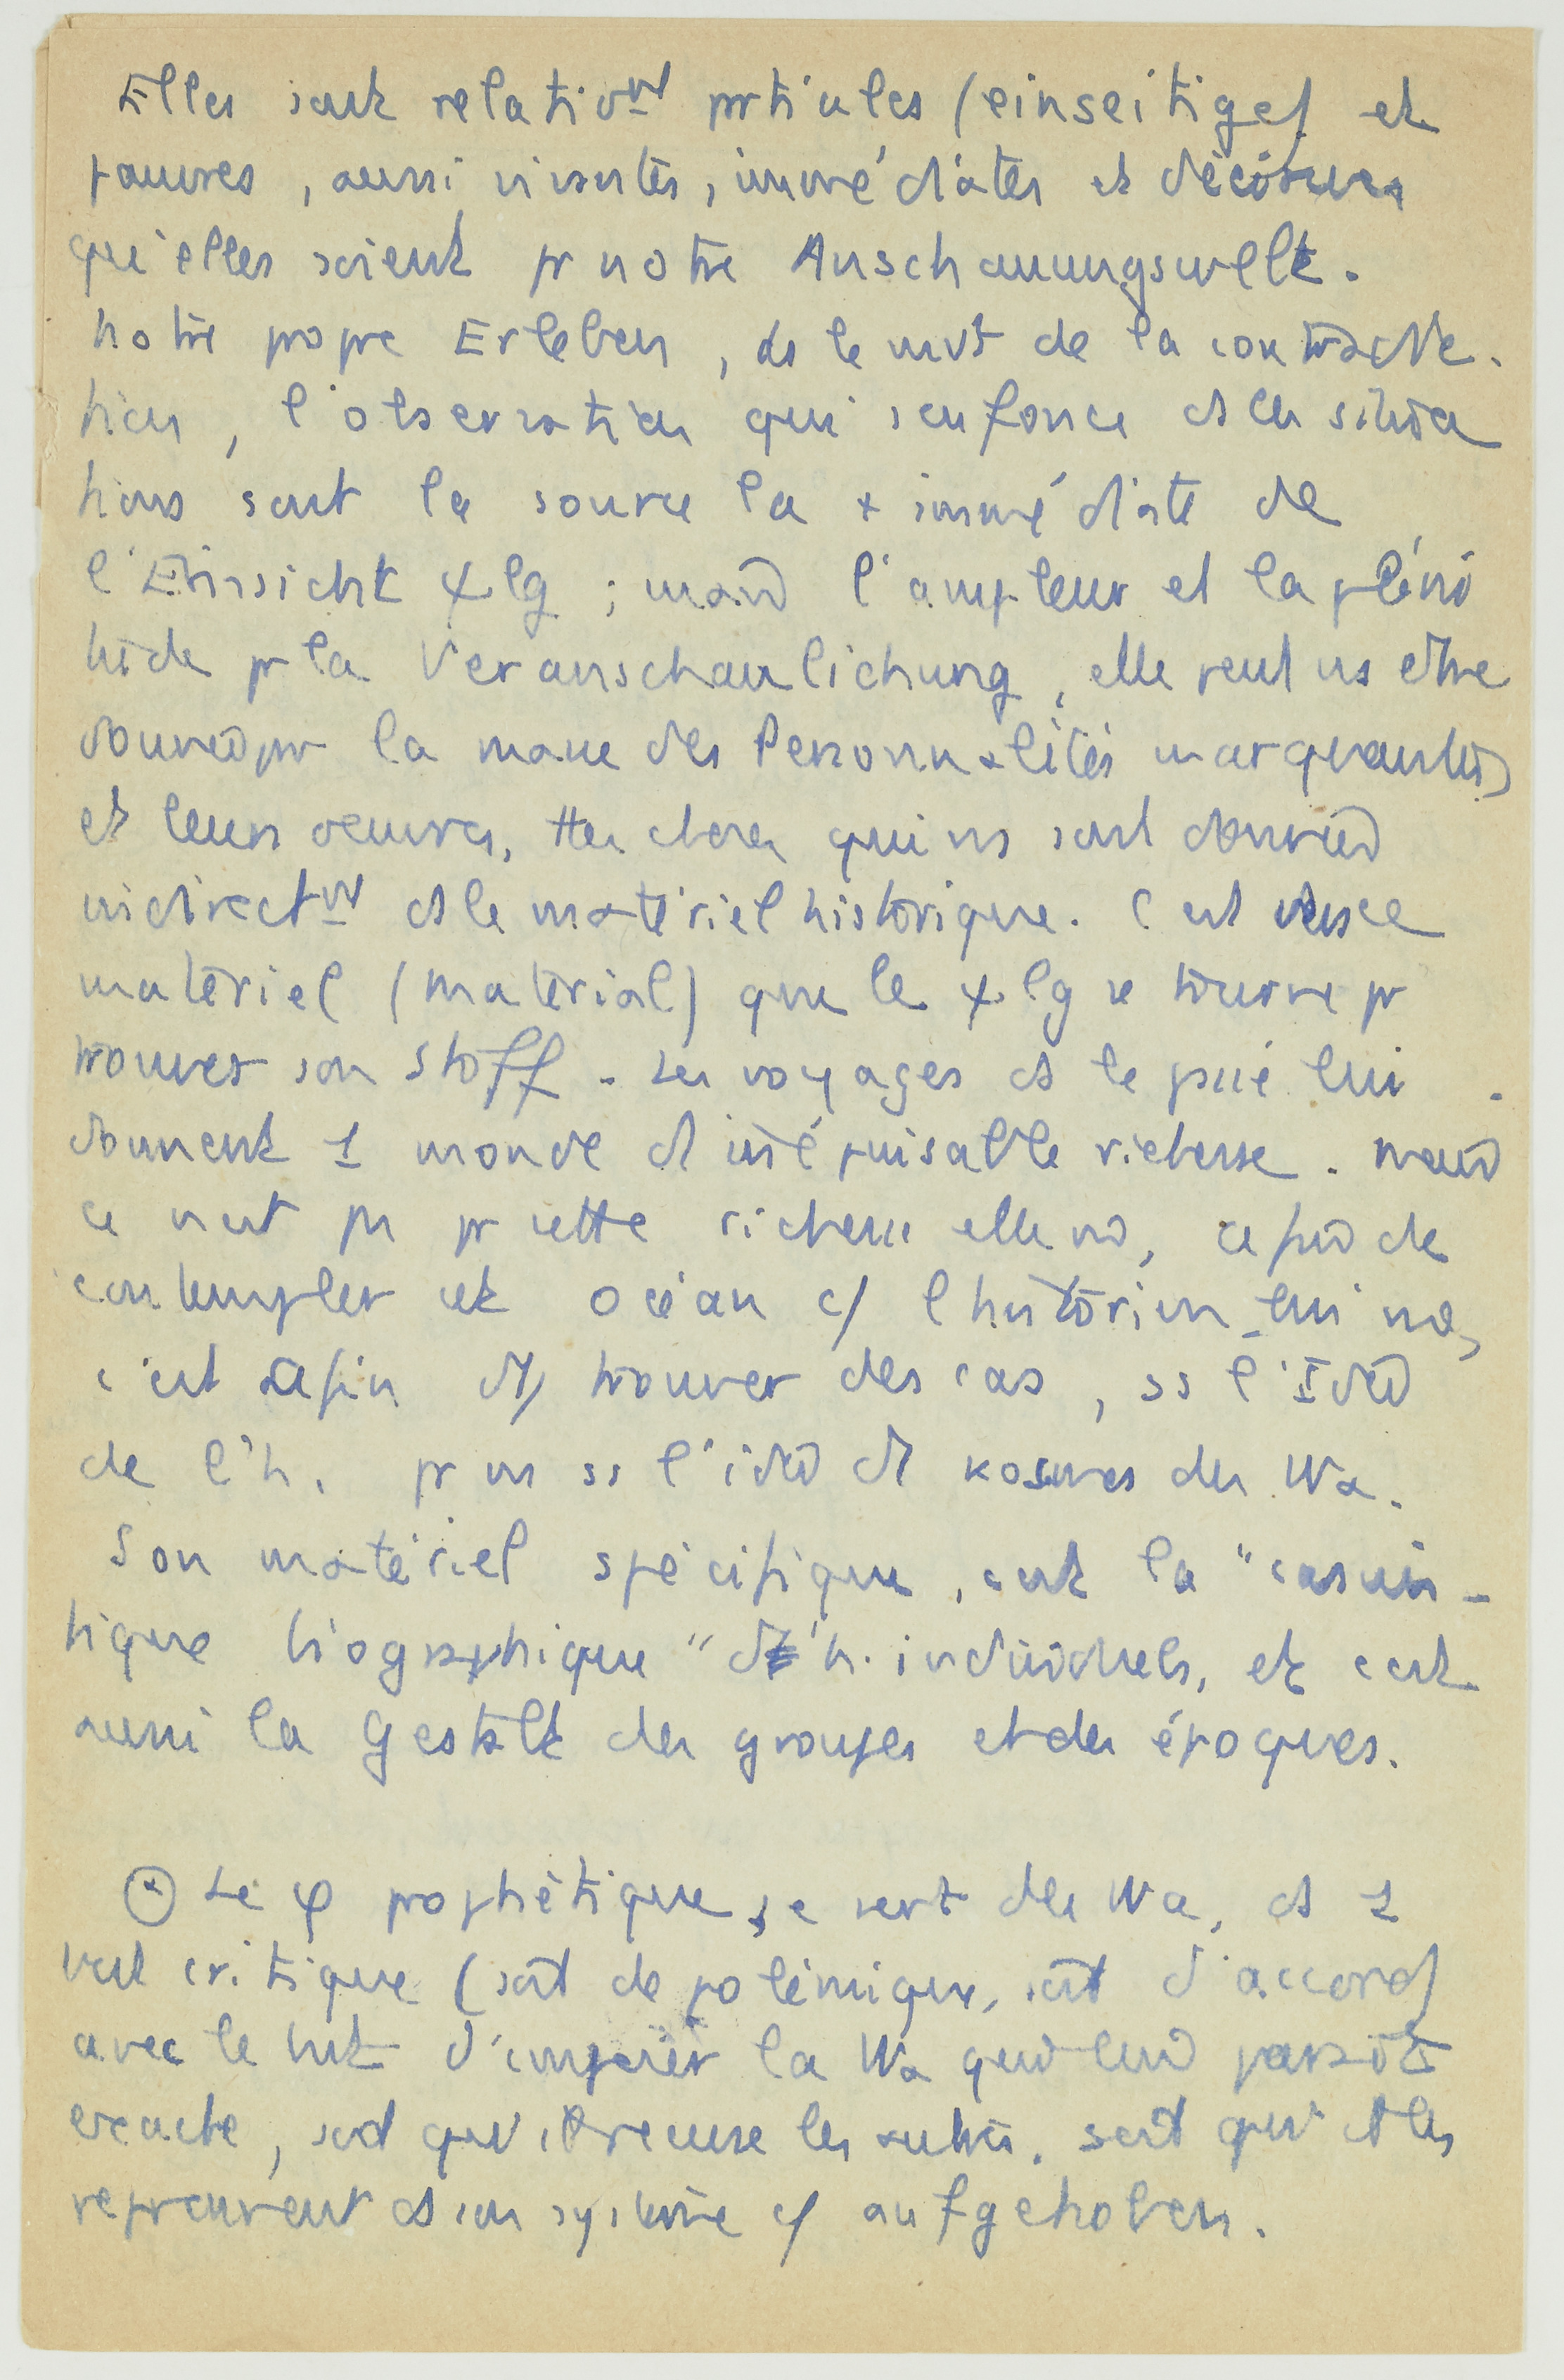 Elles sont relativt prtielles (einseitige) et
pauvres, aussi vivantes, immédiates et décisives
qu'elles soient pr notre Anschauungswelt.
Notre propre Erleben, ds le mvt de la contradic-
tion, l'observation qui s'enfonce ds les situa
tions sont la source la + immédiate de
l'Einsicht ψlg ; mais l'ampleur et la pléni
tude pr la Veranschaulichung, elle peut ns être
donnée pr la masse des Personnalités marquantes,
et leurs oeuvres, ttes choses qui ns sont données
indirectt ds le matériel historique. C'est vers ce
matériel (Material) que le ψlg se tourne pr
trouver son Stoff. Les voyages ds le passé lui
donnent 1 monde d'inépuisable richesse. Mais
ce n'est pas pr cette richesse elle m̂, afin de
contempler cet océan c/ l'historien lui m̂,
c'est afin d'y trouver des cas, ss l'Idée
de l'h. pr ns ss l'idée d kosmos des Wa.
Son matériel spécifique, c'est la "casuis-
tique biographique" d'h. individuels, et c'est
aussi la Gestalt des groupes et des époques.
* Le φ prophétique se sert des Wa, ds 1
but critique (soit de polémique, soit d'accord)
avec le but d'imposer la Wa qui lui paraît
exacte, soit qu'il récuse les autres, soit qu'il les
reprennent ds son système c/ aufgehoben.